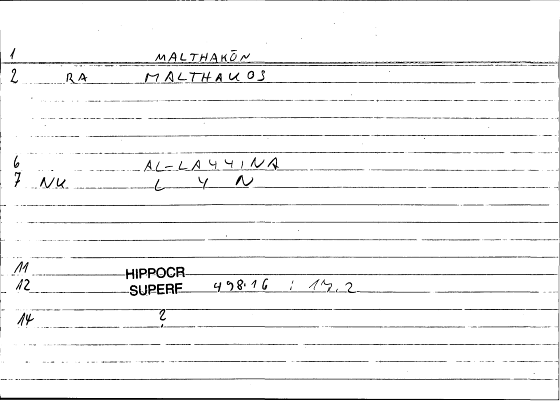 1 MALTHAKŌN
2 RA MALTHAKOS
6 AL-LAYYINA
7 NK L Y N
11 HIPPOCR
12 SUPERF 498.16 : 17.2
14 ?